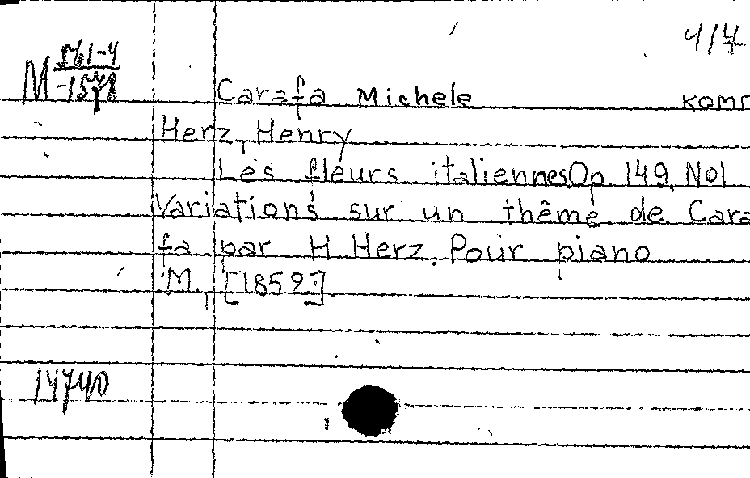 4/7
M 161-4
-1578
Carafa Michele комп
Herz, Henry
Les fleurs italiennes Op 149, No1
Variations sur un thême de Cara
fa par H Herz. Pour piano
M, [1852?]
14740